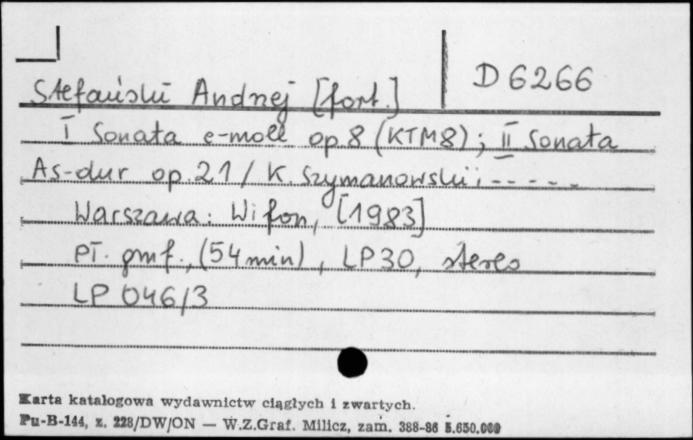 D 6266
Stefański Andrzej [fort.]
I Sonata c-moll op. 8 (KTM8); II Sonata
As-dur op. 21 / K. Szymanowski; - - - - -
Warszawa: Wifon, [1983]
Pł. gmf., (54 min), LP30, stereo
LP 046/3
Karta katalogowa wydawnictw ciągłych i zwartych.
Pu-B-144, z. 228/DW/ON — W.Z.Graf. Milicz, zam. 388-86 5.650.000